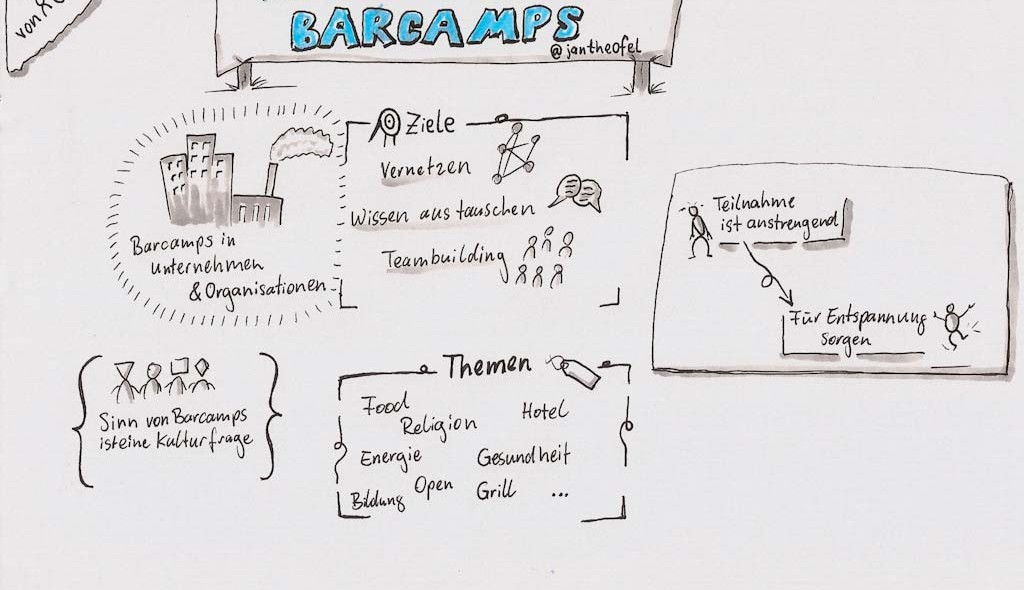 von
BARCAMPS
@jantheofel
Ziele
Vernetzen
Wissen austauschen
Teambuilding
Barcamps in
unternehmen
& Organisationen
Teilnahme
ist anstrengend
Für Entspannung
sorgen
Sinn von Barcamps
ist eine Kulturfrage
Themen
Food
Hotel
Religion
Energie
Gesundheit
Open
Bildung
Grill
...